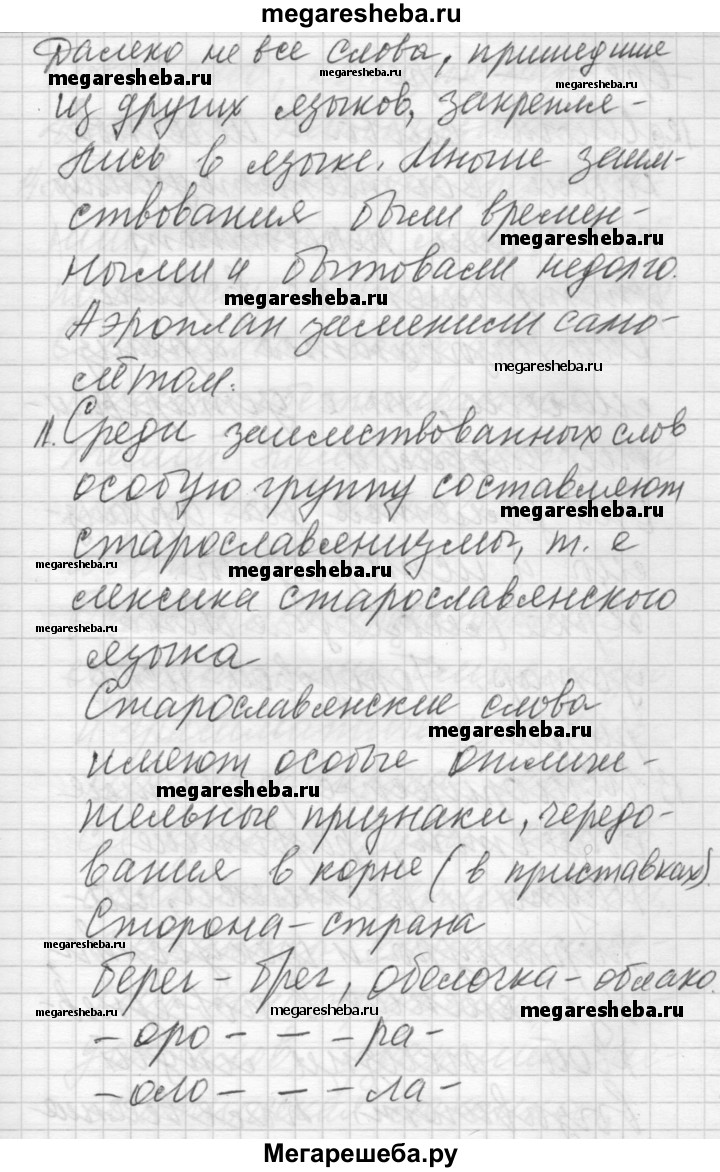 megaresheba.ru
Далеко не все слова, пришедшие
megaresheba.ru
megaresheba.ru
megaresheba.ru
из других языков, закрепля-
лись в языке. Многие заим-
ствования были времен-
megaresheba.ru
ными и бытовали недолго.
megaresheba.ru
Аэроплан заменили само-
megaresheba.ru
лётом.
11. Среди заимствованных слов
особую группу составляют
megaresheba.ru
старославянизмы, т. е
megaresheba.ru
megaresheba.ru
лексика старославянского
megaresheba.ru
языка
Старославянские слова
megaresheba.ru
имеют особые отличи-
megaresheba.ru
тельные признаки, чередо-
вания в корне (в приставках).
Сторона - страна
megaresheba.ru
берег - брег, оболочка - облако.
megaresheba.ru
megaresheba.ru
megaresheba.ru
- оро - - - ра -
- оло - - - ла -
Мегарешеба.ру